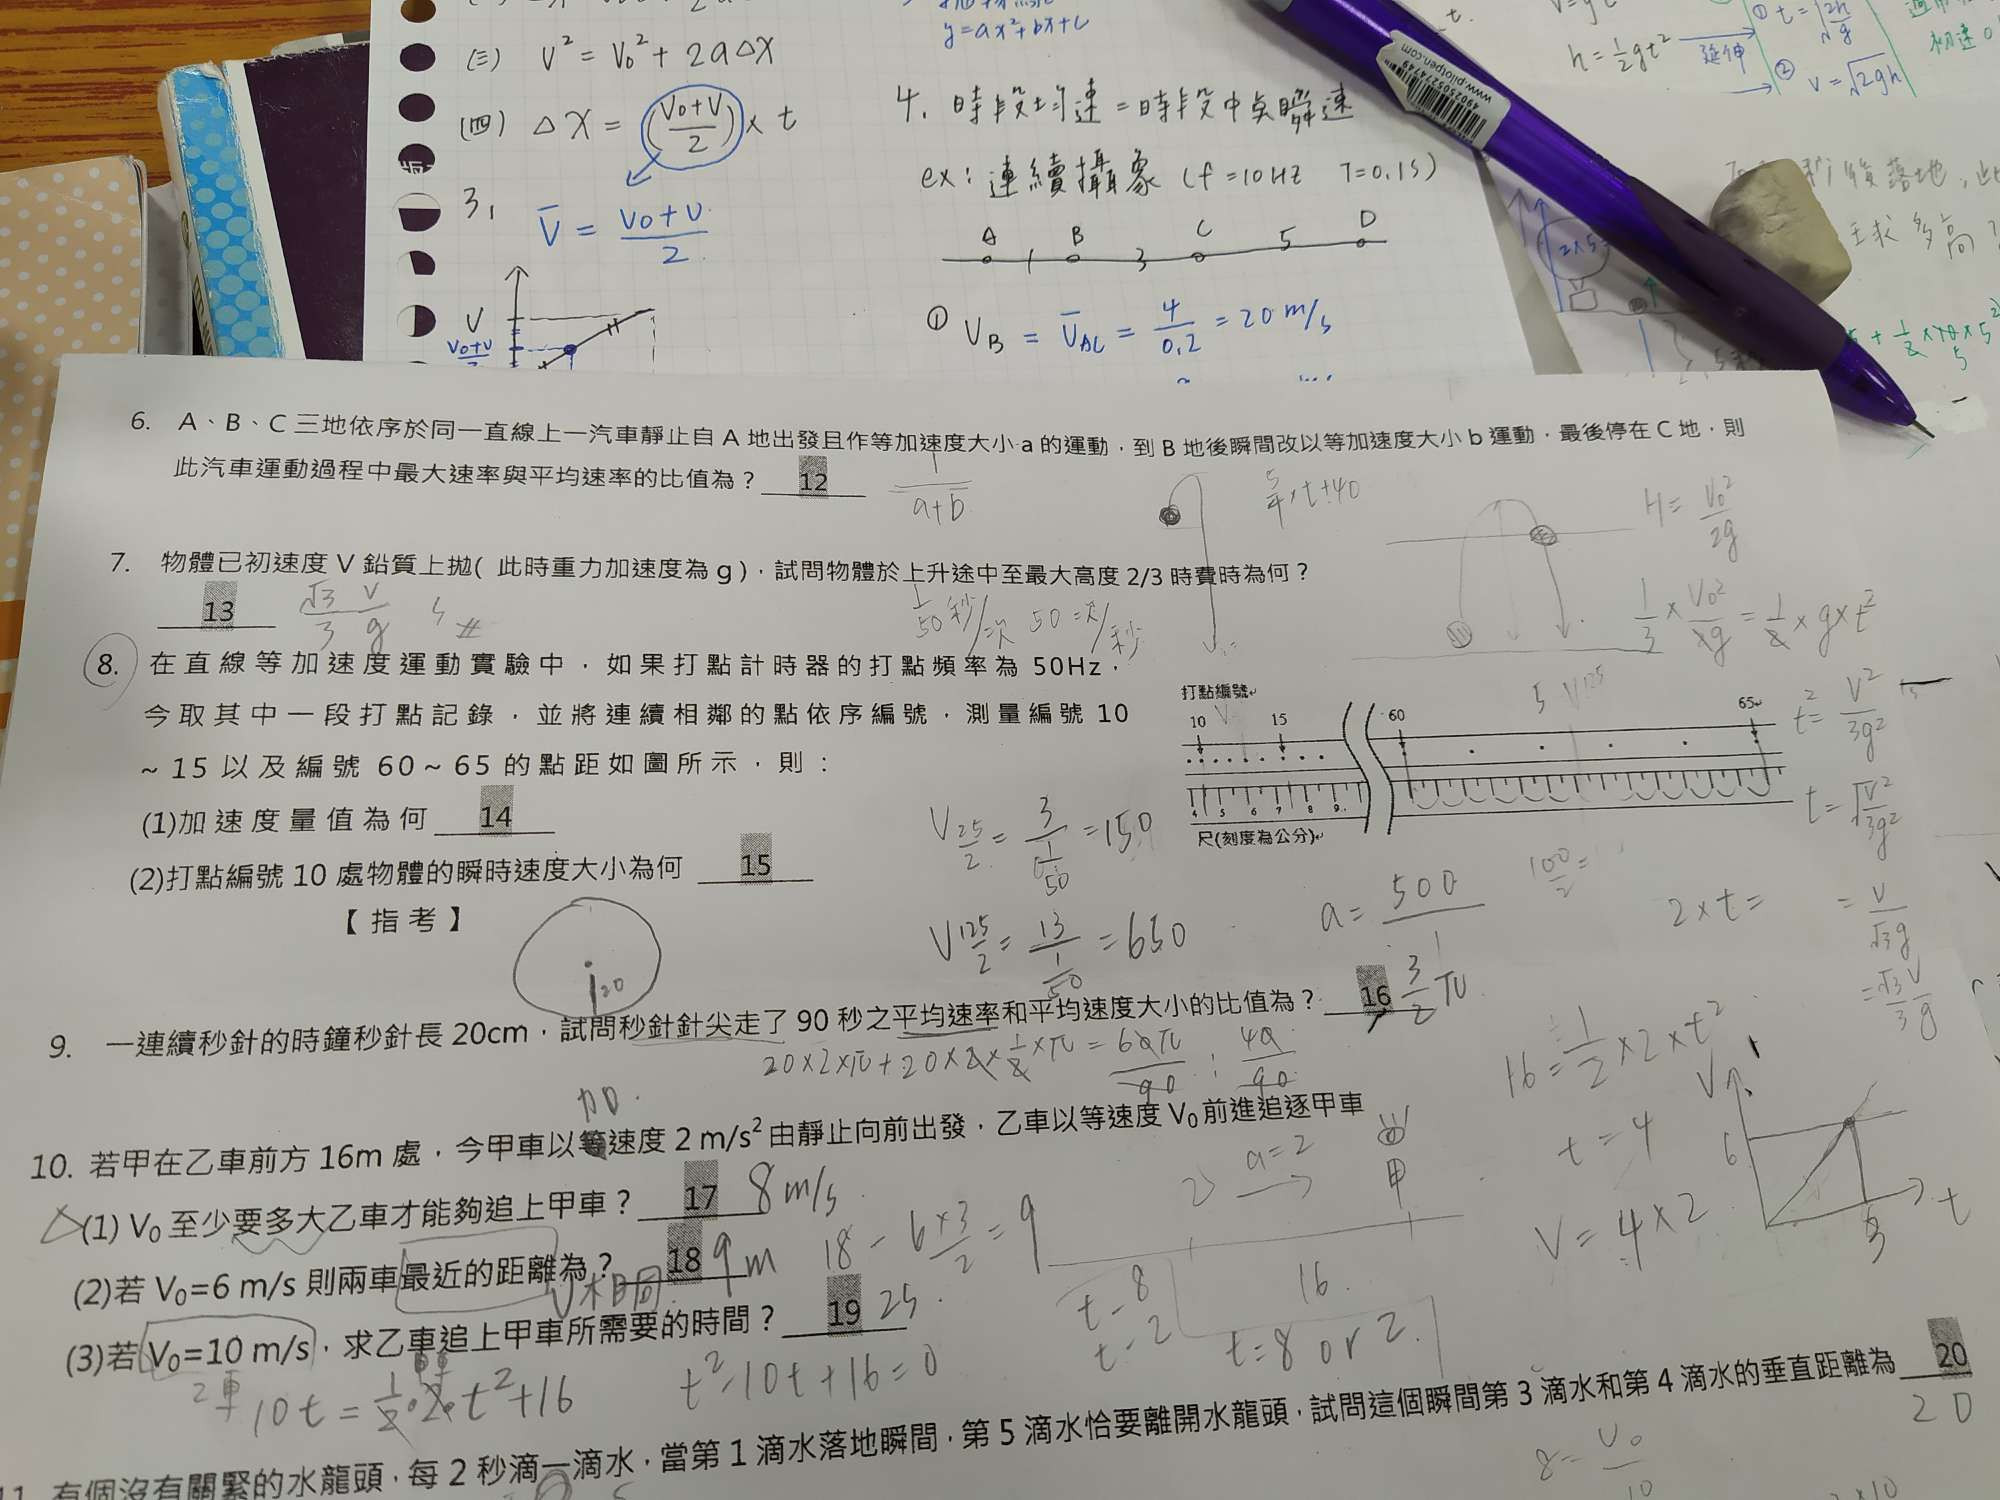 (三) V² = V₀² + 2aΔX
(四) ΔX = (V₀+V/2) × t
3. V̄ = V₀+V/2
V
V₀+V
y=ax²+bx+c
4. 時段均速=時段中点瞬速
ex: 連續攝象 (f=10HZ T=0.1s)
A B C D
1 3 5
① V_B = V̄_AC = 4/0.2 = 20 m/s
www.pilotpen.com
4902505274749
h=½gt² 延伸
① t=√2h/g
② v=√2gh
初速0
秒後落地
求多高?
2×5
6. A、B、C 三地依序於同一直線上一汽車靜止自 A 地出發且作等加速度大小 a 的運動，到 B 地後瞬間改以等加速度大小 b 運動，最後停在 C 地，則
此汽車運動過程中最大速率與平均速率的比值為？ 12
1/a+b
5/4×t+40
H = V₀²/2g
7. 物體已初速度 V 鉛質上拋( 此時重力加速度為 g )，試問物體於上升途中至最大高度 2/3 時費時為何？
13 √3/3 V/g
1/50 秒/次 50 次/秒
1/3 × V₀²/2g = 1/2 × g × t²
t² = V²/3g²
t = √V²/3g²
= V/√3g
= √3/3 V/g
8. 在直線等加速度運動實驗中，如果打點計時器的打點頻率為 50Hz，
今取其中一段打點記錄，並將連續相鄰的點依序編號，測量編號 10
~ 15 以及編號 60 ~ 65 的點距如圖所示，則：
(1)加速度量值為何 14
(2)打點編號 10 處物體的瞬時速度大小為何 15
【指考】
打點編號
10 15 60 65
4 5 6 7 8 9
尺(刻度為公分)
V25/2 = 3/(1/50) = 150
V125/2 = 13/(1/50) = 650
a = 500/1
100/2 =
2×t=
20
9. 一連續秒針的時鐘秒針長 20cm，試問秒針針尖走了 90 秒之平均速率和平均速度大小的比值為？ 16 3/2 π
20×2×π+20×2×½×π = 60π/90 : 40/90
加
10. 若甲在乙車前方 16m 處，今甲車以等速度 2 m/s² 由靜止向前出發，乙車以等速度 V₀ 前進追逐甲車
(1) V₀ 至少要多大乙車才能夠追上甲車？ 17 8 m/s
(2)若 V₀=6 m/s 則兩車最近的距離為？ 18 9 m
V相同
18 - 6×3/2 = 9
(3)若 V₀=10 m/s，求乙車追上甲車所需要的時間？ 19 2s
10t = ½·2·t²+16
t²-10t+16=0
t-8
t-2
t=8 or 2.
a=2
甲
16
16 = ½×2×t²
t=4
V=4×2
V
6
3
t
11. 有個沒有關緊的水龍頭，每 2 秒滴一滴水，當第 1 滴水落地瞬間，第 5 滴水恰要離開水龍頭，試問這個瞬間第 3 滴水和第 4 滴水的垂直距離為 20
20